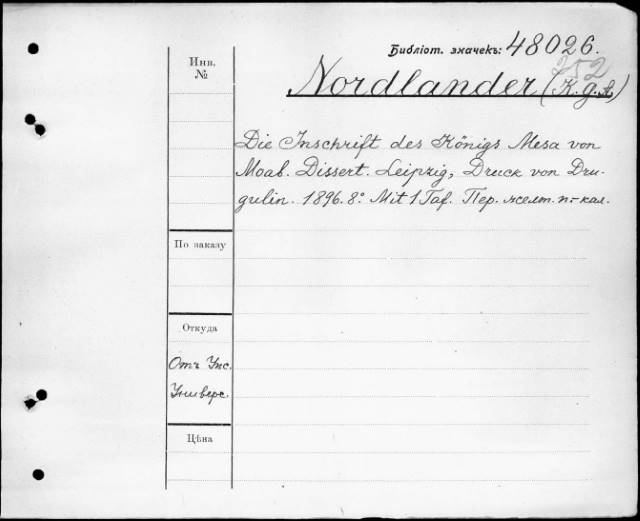 Библіот. значекъ: 48026.
252
Инв.
№
Nordlander (K. g. A.)
Die Inschrift des Königs Mesa von
Moab. Dissert. Leipzig, Druck von Dru-
gulin. 1896. 8º. Mit 1 Taf. Пер. желт. п.-кал.
По заказу
Откуда
Отъ Упс.
Универс.
Цѣна